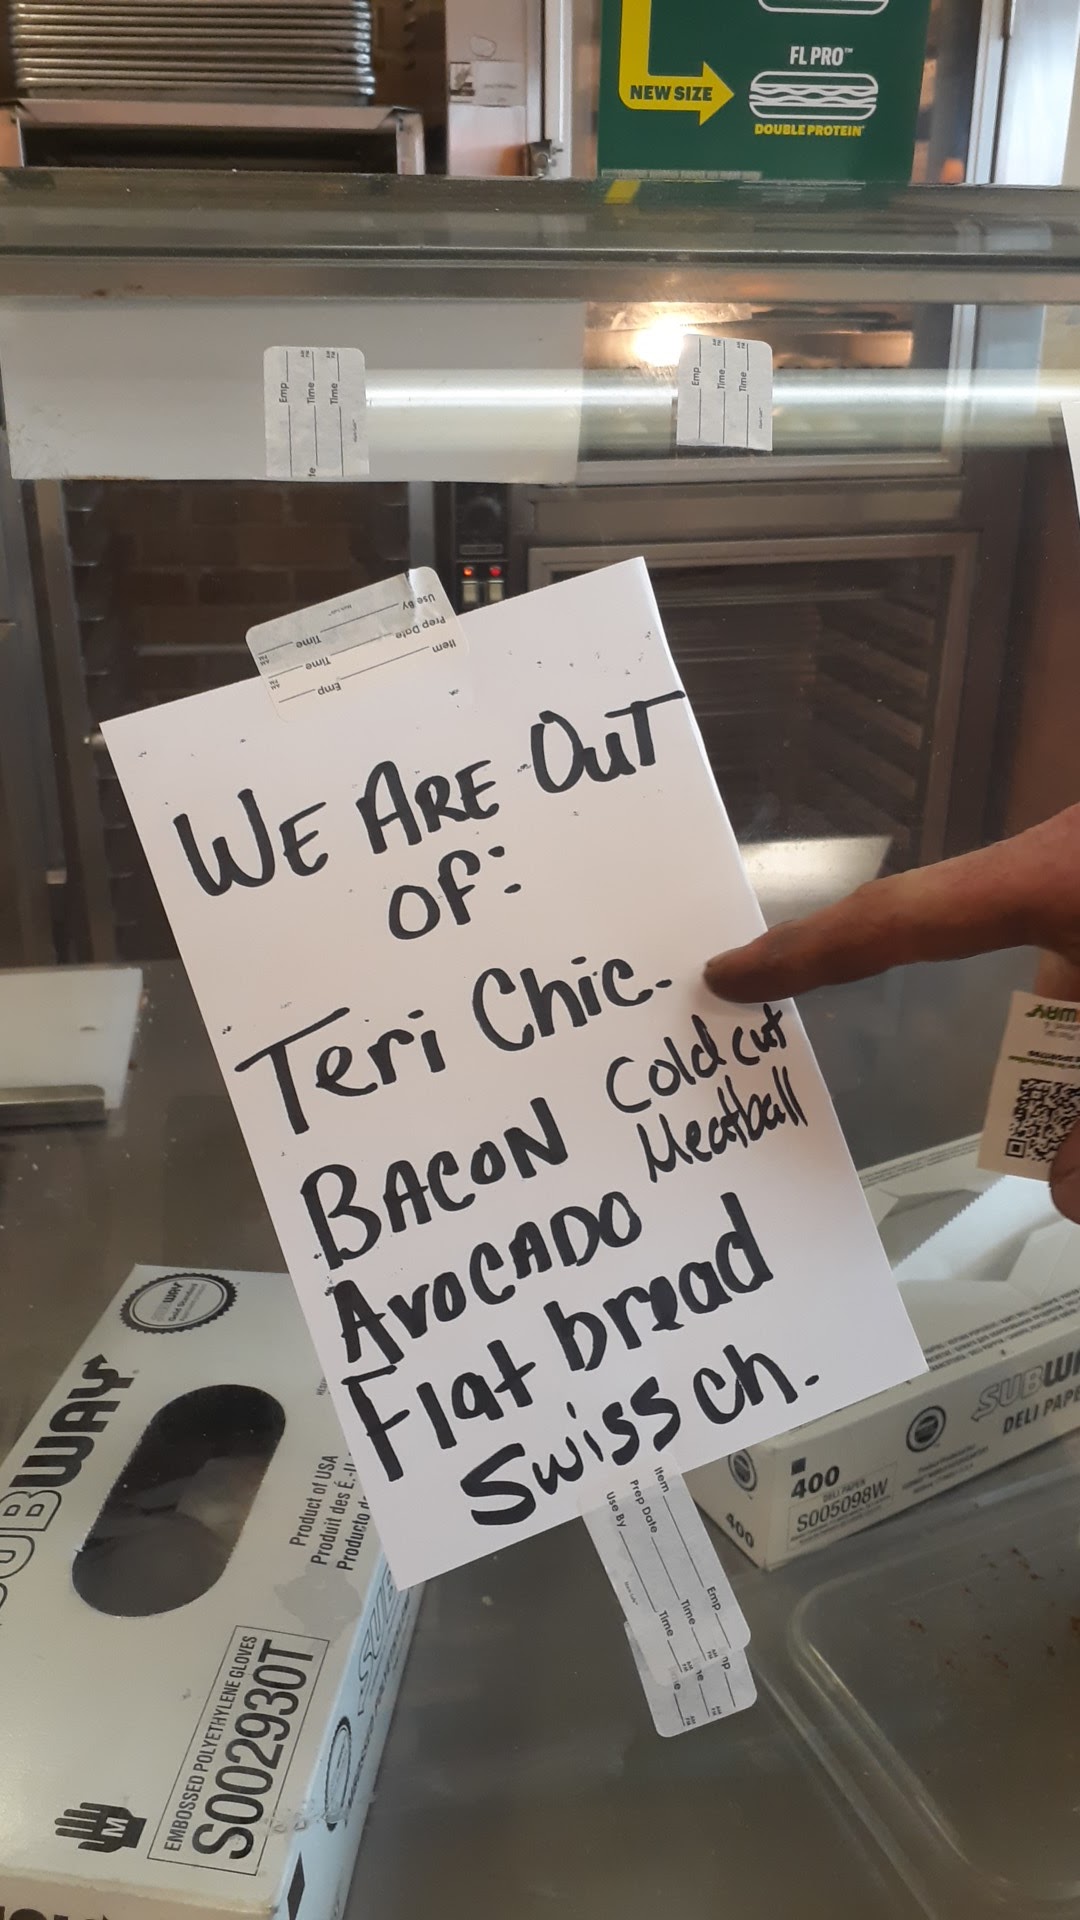 FL PRO™
NEW SIZE
DOUBLE PROTEIN*
Emp
Time
Time
Emp
Time
Time
Use By
Prep Date Time
Item Time
Emp
WE ARE OUT
OF:
Teri Chic.
Cold cut
BACON Meatball
AVOCADO
Flat bread
Swiss ch.
Item
Prep Date
Use By
Emp
Time
Time
WAY
SUBWAY
Product of USA
Produit des É.-U
Producto d
EMBOSSED POLYETHYLENE GLOVES
S002930T
M
SUBWAY
DELI PAPE
400
DELI PAPER
S005098W
400